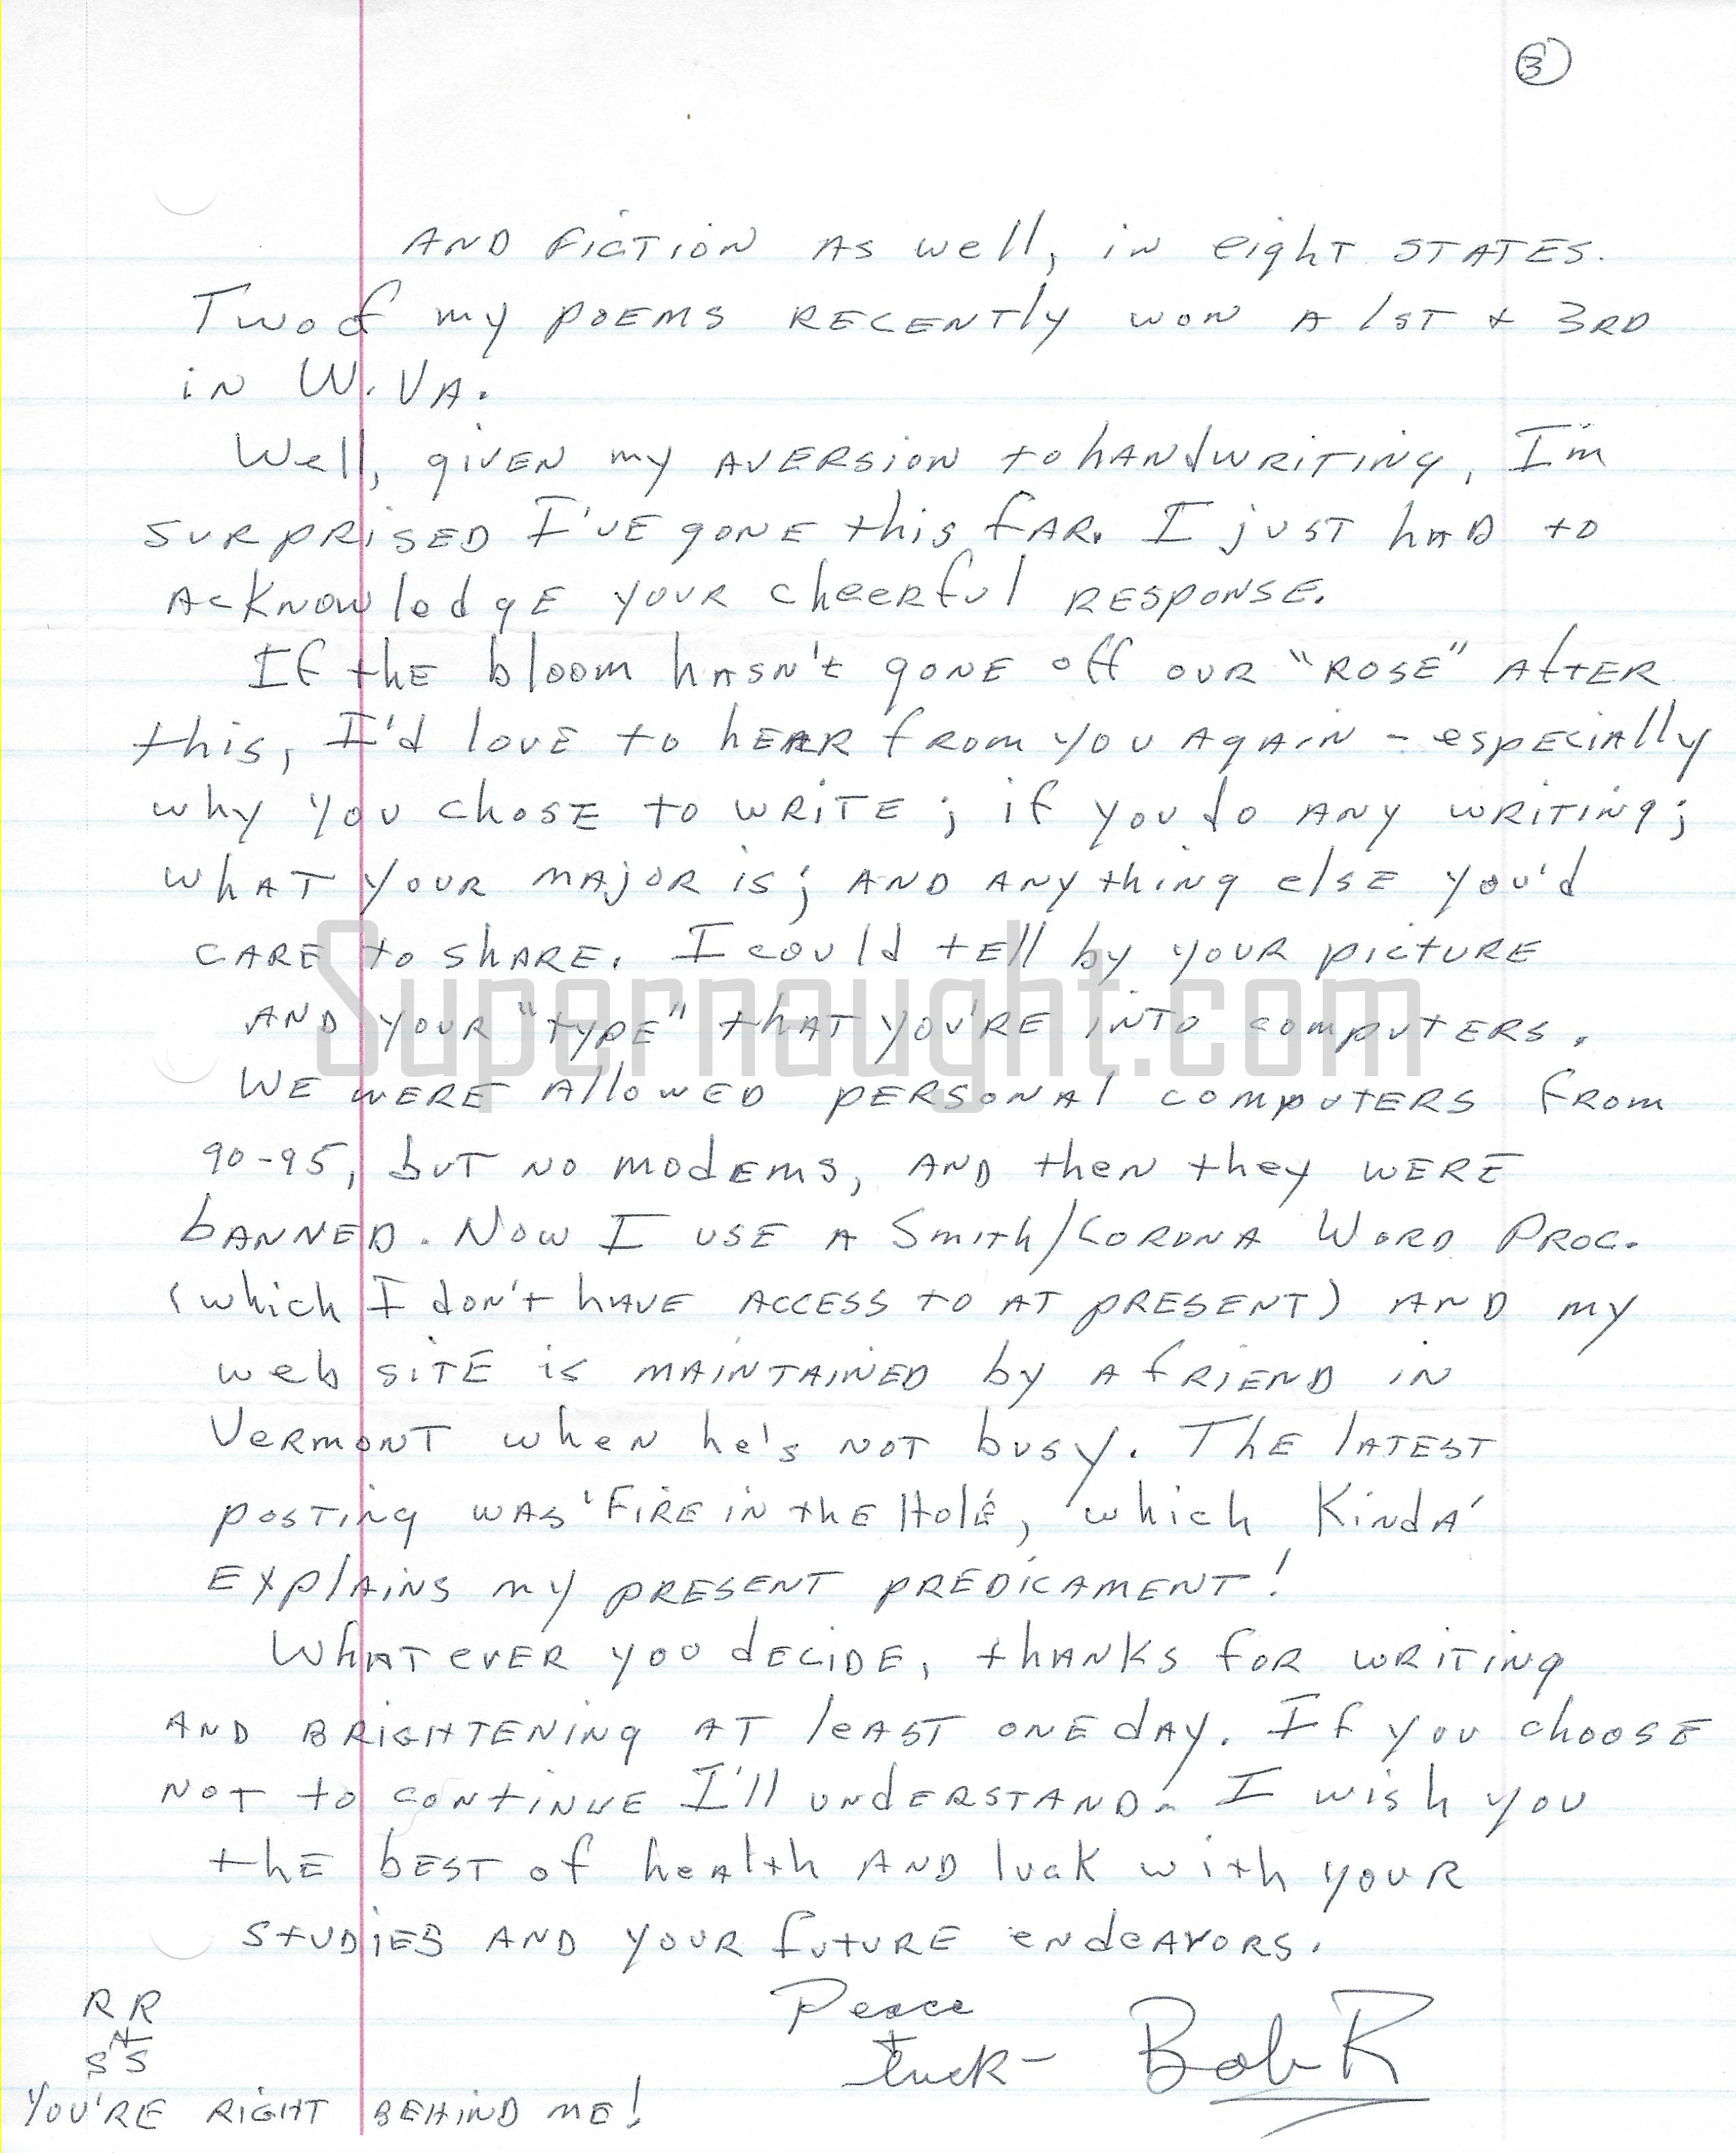 3
AND FICTION AS well, in eight STATES.
Two of my POEMS RECENTLY WON A 1ST & 3RD
in W. VA.
Well, given my AVERSION to hANdWRITING, I'm
SURPRISED I'VE gONE this fAR. I just hAD to
AcKNOWledgE YOUR cheerful RESPONSE.
If thE bloom hASN't gONE off OUR "ROSE" AftER
this, I'd lovE to hEAR fROM you AgAiN - especiAlly
why you choSE to WRiTE; if you do ANY WRITING;
whAT YOUR mAJOR is; AND ANY thing elsE you'd
CARE to shARE. I could tEll by YOUR picturE
AND YOUR "typE" thAT YOU'RE iNTO computERS.
WE WERE AllowED PERSONAl computERS from
90-95, buT NO modEms, AND then they WERE
bANNED. NOW I USE A Smith/CORONA WORD PROC.
(which I don't hAVE ACCESS to AT PRESENT) AND my
web siTE is mAINTAINED by A fRIEND iN
VermoNT wheN he's NOT busy. ThE lATEST
postiNg WAS 'FIRE IN thE HolE', which KindA'
ExplAins my PRESENT PREDICAMENT!
WhATever you dECIDE, thANKS foR WRITING
AND BRIGHTENING AT leAST ONE dAY. If you choosE
NOT to contiNuE I'll undERSTAND. I wish you
thE bEST of heAlth AND luck with youR
studiES AND YOUR futuRE endeAvORS.
Peace
+
Luck - Bob R
R R
N
S S
YOU'RE RIGHT BEHIND ME!
Supernaught.com